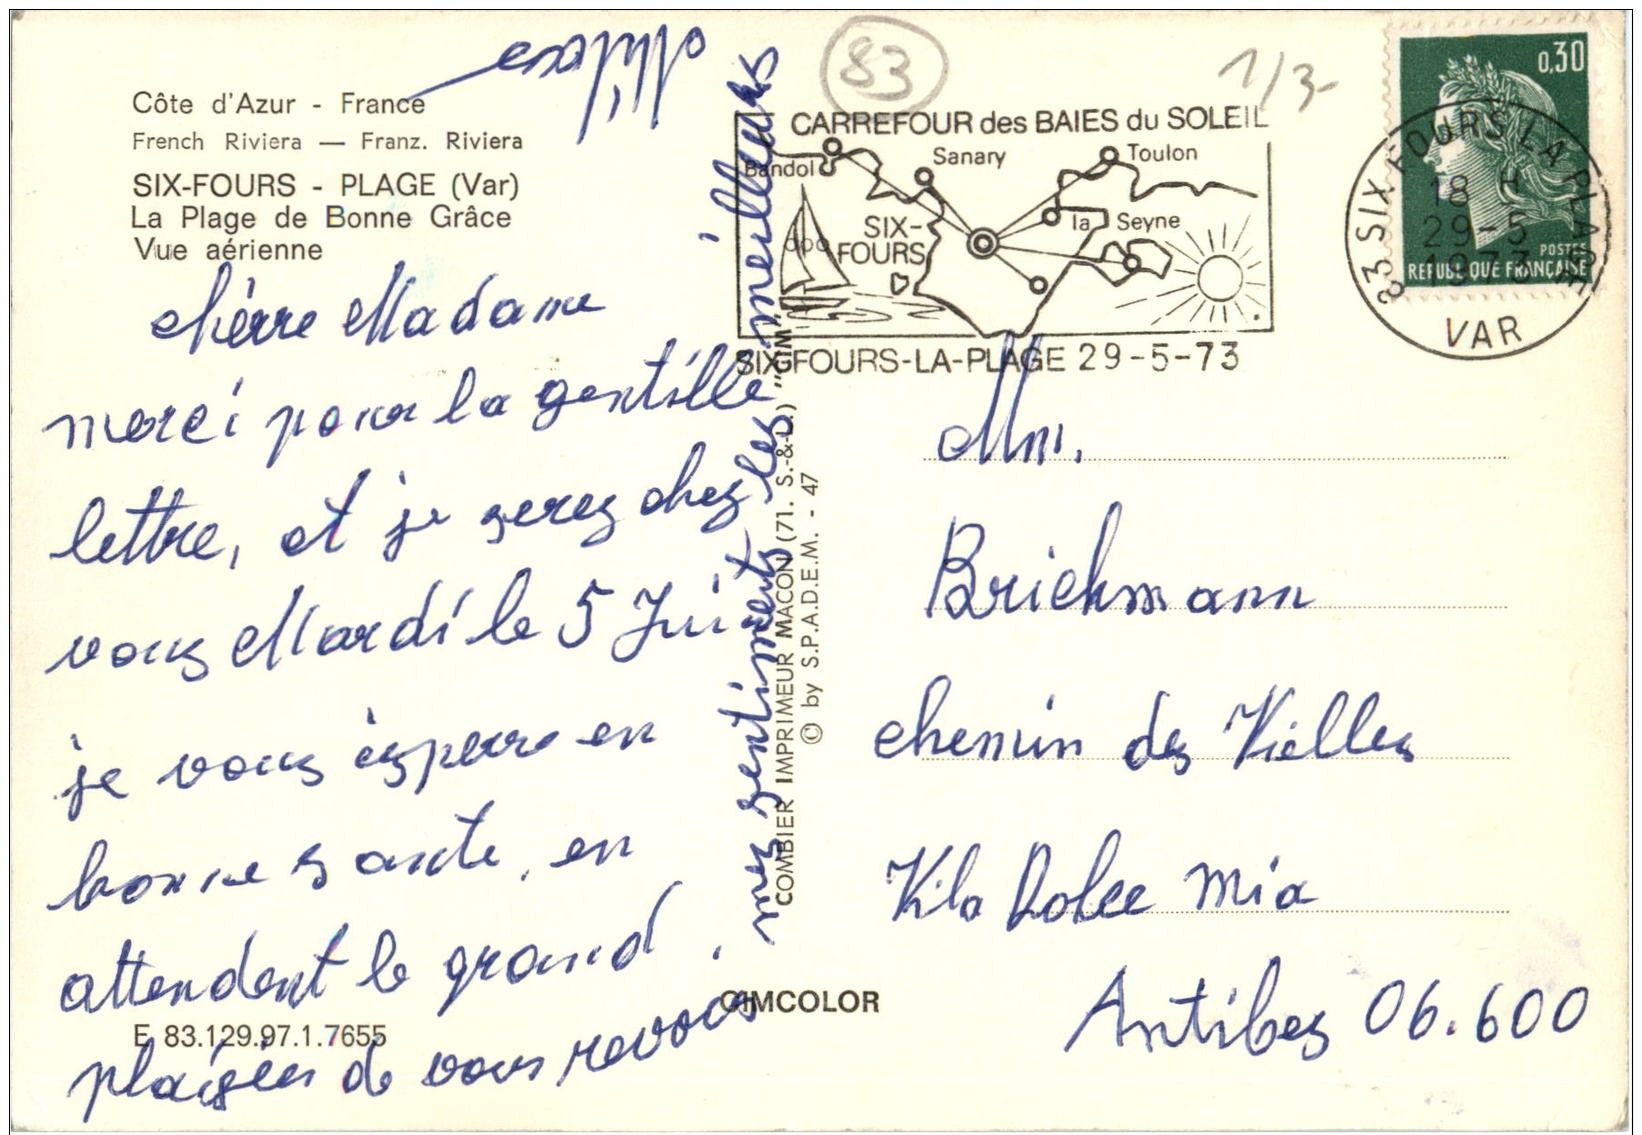 Côte d'Azur - France
French Riviera — Franz. Riviera
SIX-FOURS - PLAGE (Var)
La Plage de Bonne Grâce
Vue aérienne
chérre Madame
merci pour la gentille
lettre, et je serez chez
vous Mardi le 5 Juin
je vous éspere en
bonne sante, en
attendent le grand
plaisir de vous revoir,
mes sentiments les meilleurs
E 83.129.97.1.7655
CIMCOLOR
COMBIER IMPRIMEUR MACON (71. S.-&-L.) "CIM"
© by S.P.A.D.E.M. - 47
83
1/3-
CARREFOUR des BAIES du SOLEIL
Bandol
Sanary
Toulon
SIX-FOURS
la Seyne
SIX-FOURS-LA-PLAGE 29-5-73
0,30
POSTES
REPUBLIQUE FRANÇAISE
83 SIX FOURS LA PLAGE
18 H
29-5
1973
VAR
Mm.
Brickmann
chemin des Vielles
Vila Dolce Mia
Antibes 06.600